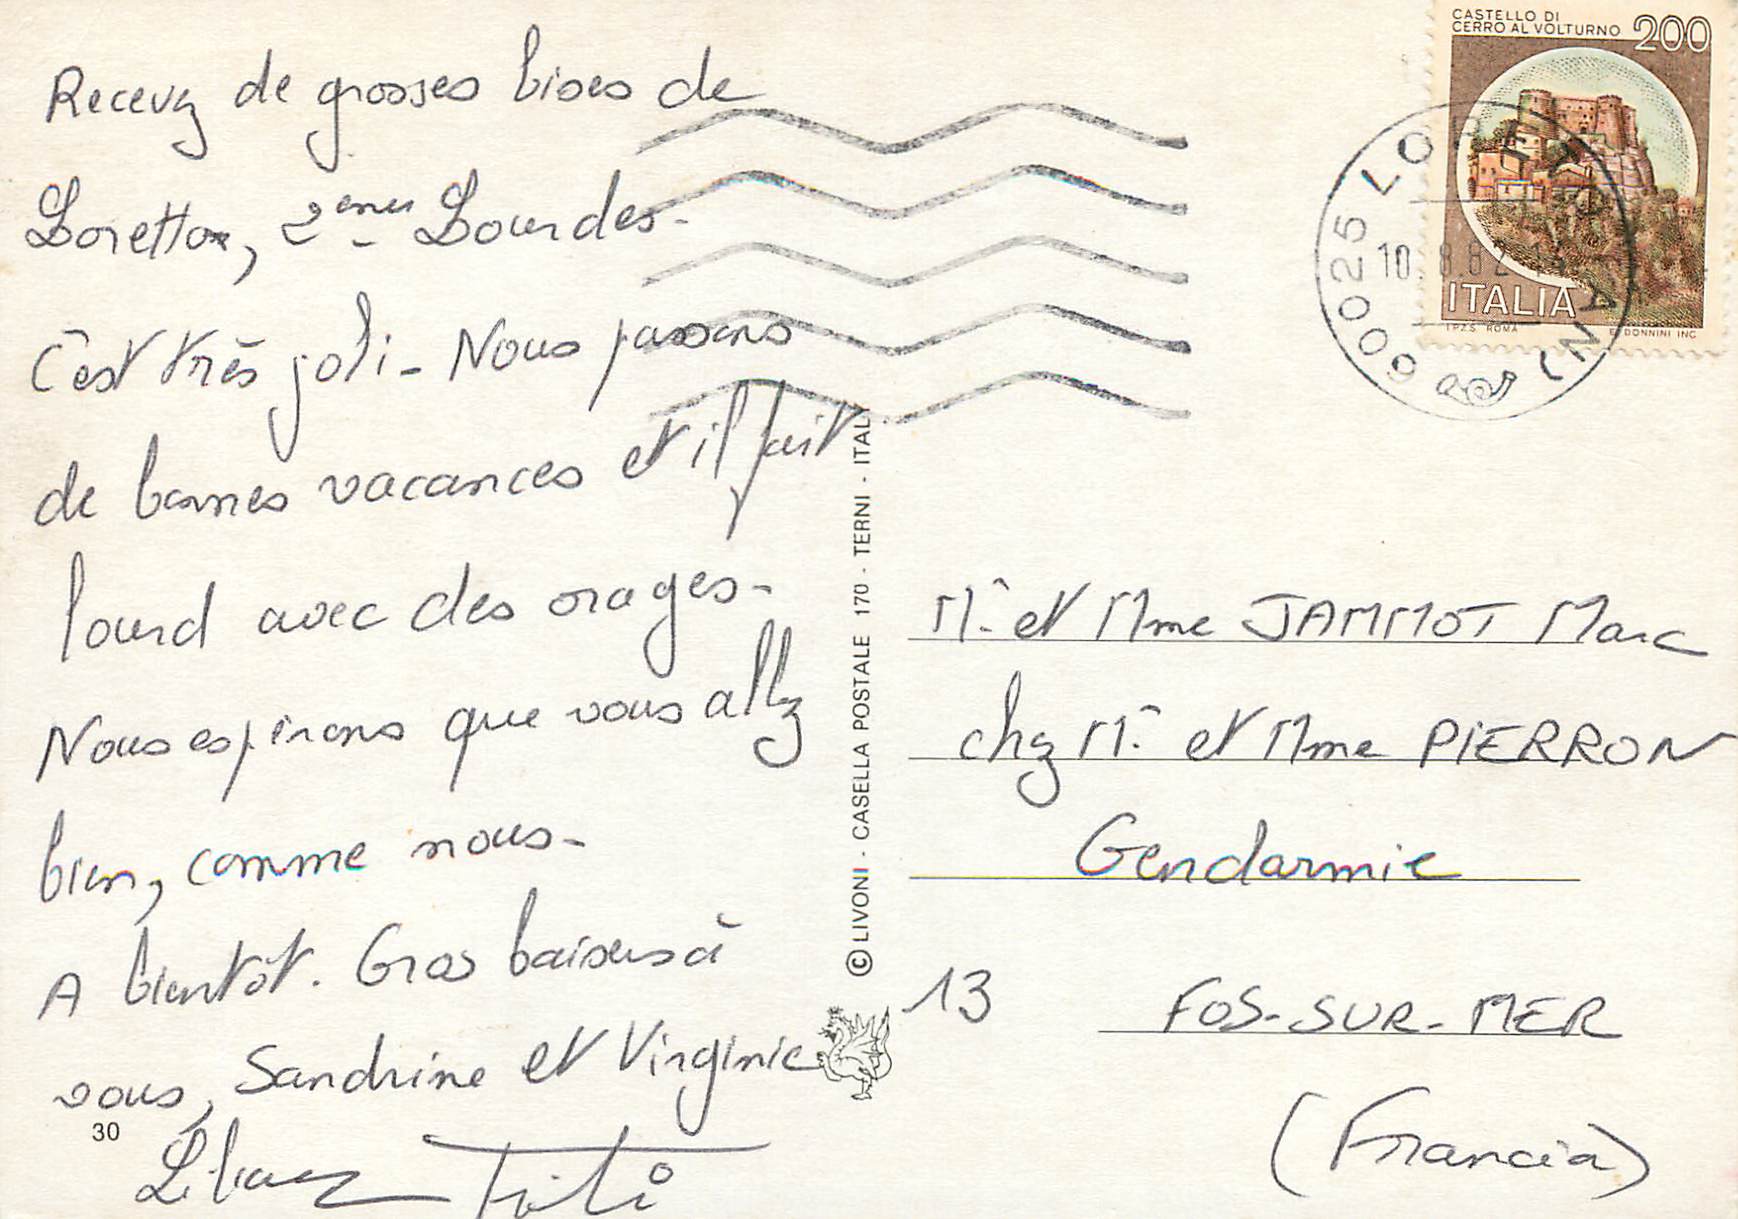 Recevez de grosses bises de
Loretto, 2emes Lourdes-
C'est très joli - Nous passons
de bonnes vacances et il fait
lourd avec des orages-
Nous espérons que vous allez
bien, comme nous-
A bientôt. Gros baisers à
vous, Sandrine et Virginie
30
CASTELLO DI
CERRO AL VOLTURNO 200
ITALIA
I.P.Z.S. ROMA E. DONNINI INC.
60025 LORETO (AN)
10.8.82
© LIVONI - CASELLA POSTALE 170 - TERNI - ITALY
Mr et Mme JAMMOT Marc
chez Mr et Mme PIERRON
Gendarmie
13 FOS-SUR-MER
(Francia)